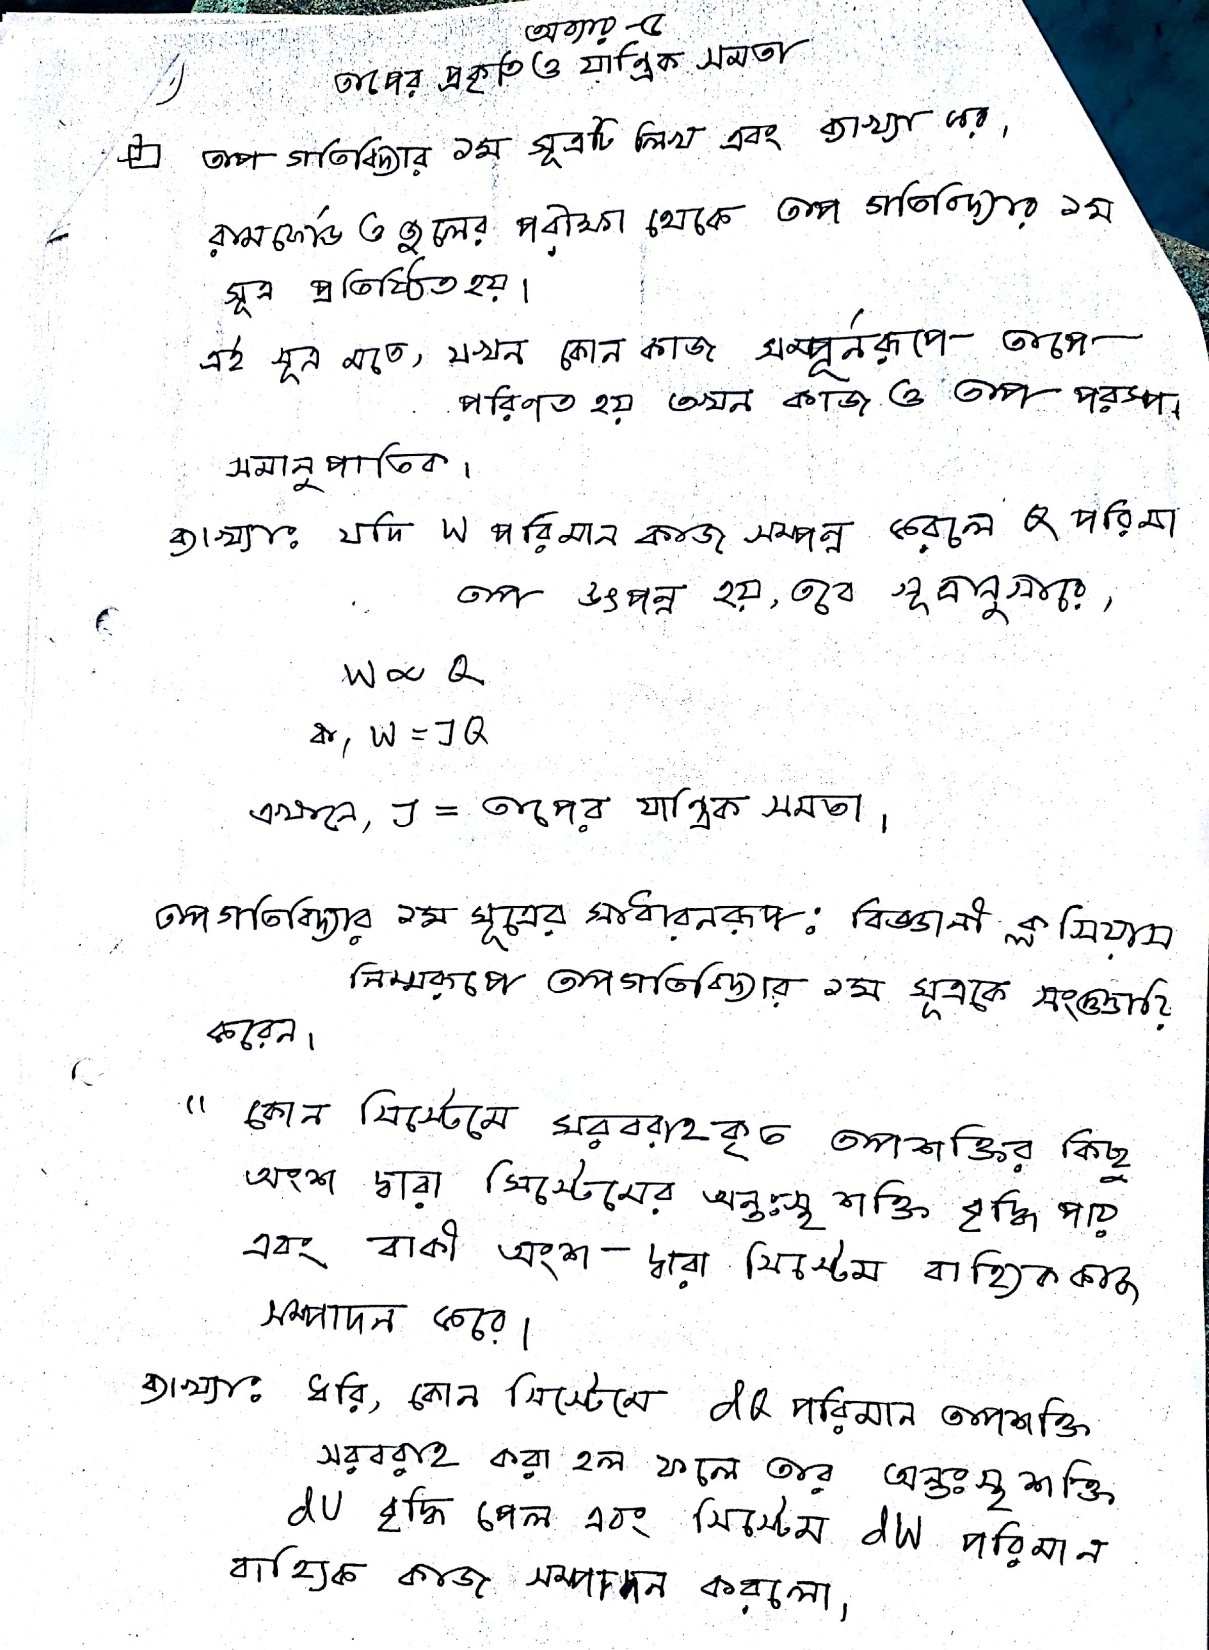 অধ্যায় -৫
১) তাপের প্রকৃতি ও যান্ত্রিক সমতা
তাপ গতিবিদ্যার ১ম সূত্রটি লিখ এবং ব্যাখ্যা কর,
রামফোর্ড ও জুলের পরীক্ষা থেকে তাপ গতিবিদ্যার ১ম
সূত্র প্রতিষ্ঠিত হয়।
এই সূত্র মতে, যখন কোন কাজ সম্পূর্নরূপে তাপে
পরিণত হয় তখন কাজ ও তাপ পরস্প
সমানুপাতিক।
ব্যাখ্যাঃ যদি W পরিমান কাজ সম্পন্ন করলে Q পরিমা
তাপ উৎপন্ন হয়, তবে সূত্রানুসারে,
W ∝ Q
বা, W = JQ
এখানে, J = তাপের যান্ত্রিক সমতা,
তাপগতিবিদ্যার ১ম সূত্রের সাধারনরূপ: বিজ্ঞানী ক্লসিয়াস
নিম্মরূপে তাপগতিবিদ্যার ১ম সূত্রকে সংজ্ঞায়ি
করেন।
" কোন সিস্টেমে সরবরাহকৃত তাপশক্তির কিছু
অংশ দ্বারা সিস্টেমের অন্তঃস্থ শক্তি বৃদ্ধি পায়
এবং বাকী অংশ দ্বারা সিস্টেম বাহ্যিক কাজ
সম্পাদন করে।
ব্যাখ্যাঃ ধরি, কোন সিস্টেমে dQ পরিমান তাপশক্তি
সরবরাহ করা হল ফলে তার অন্তঃস্থ শক্তি
dU বৃদ্ধি পেল এবং সিস্টেম dW পরিমান
বাহ্যিক কাজ সম্পাদন করলো,